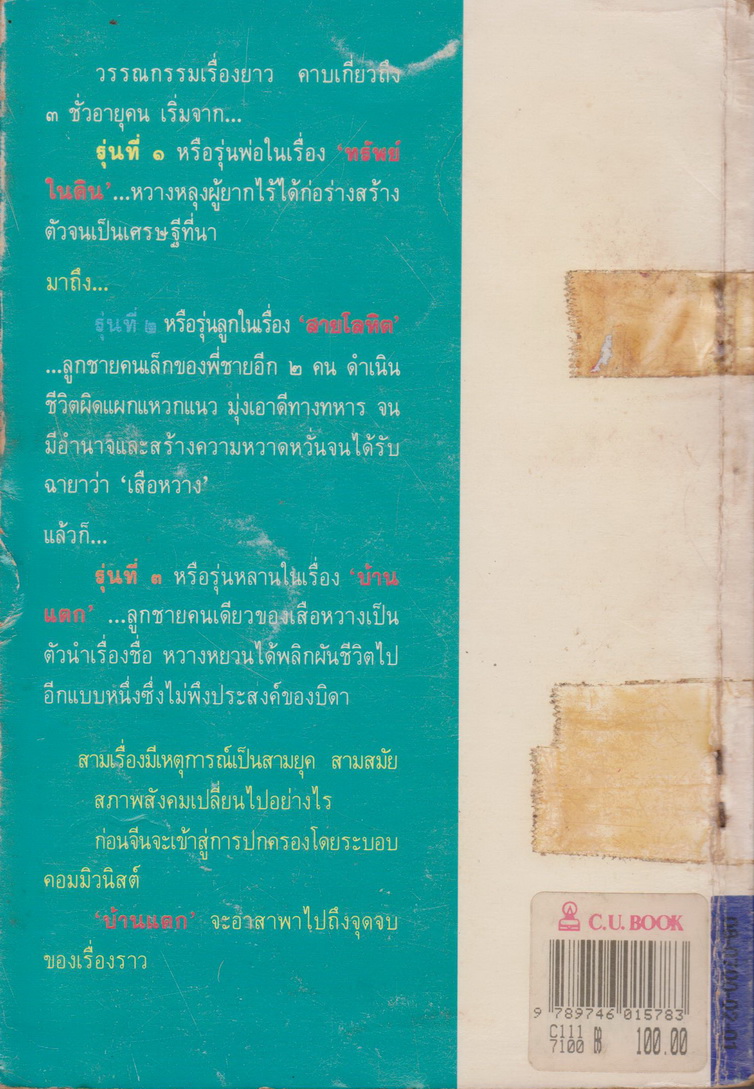 วรรณกรรมเรื่องยาว คาบเกี่ยวถึง
๓ ชั่วอายุคน เริ่มจาก...
รุ่นที่ ๑ หรือรุ่นพ่อในเรื่อง ‘ทรัพย์
ในดิน’...หวางหลุงผู้ยากไร้ได้ก่อร่างสร้าง
ตัวจนเป็นเศรษฐีที่นา
มาถึง...
รุ่นที่ ๒ หรือรุ่นลูกในเรื่อง ‘สายโลหิต’
...ลูกชายคนเล็กของพี่ชายอีก ๒ คน ดำเนิน
ชีวิตผิดแผกแหวกแนว มุ่งเอาดีทางทหาร จน
มีอำนาจและสร้างความหวาดหวั่นจนได้รับ
ฉายาว่า ‘เสือหวาง’
แล้วก็...
รุ่นที่ ๓ หรือรุ่นหลานในเรื่อง ‘บ้าน
แตก’ ...ลูกชายคนเดียวของเสือหวางเป็น
ตัวนำเรื่องชื่อ หวางหยวนได้พลิกผันชีวิตไป
อีกแบบหนึ่งซึ่งไม่พึงประสงค์ของบิดา
สามเรื่องมีเหตุการณ์เป็นสามยุค สามสมัย
สภาพสังคมเปลี่ยนไปอย่างไร
ก่อนจีนจะเข้าสู่การปกครองโดยระบอบ
คอมมิวนิสต์
‘บ้านแตก’ จะอาสาพาไปถึงจุดจบ
ของเรื่องราว
C.U. BOOK
9 789746 015783
C111
7100 100.00